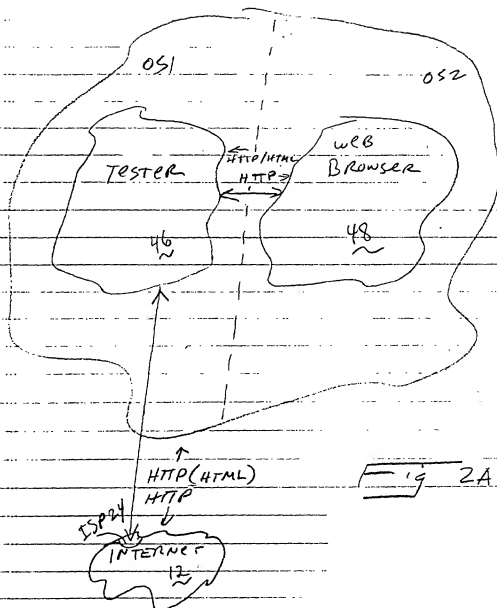 OS1
OS2
TESTER
HTTP/HTML
HTTP
WEB
BROWSER
46
48
HTTP(HTML)
HTTP
Fig 2A
ISP 24
INTERNET
12